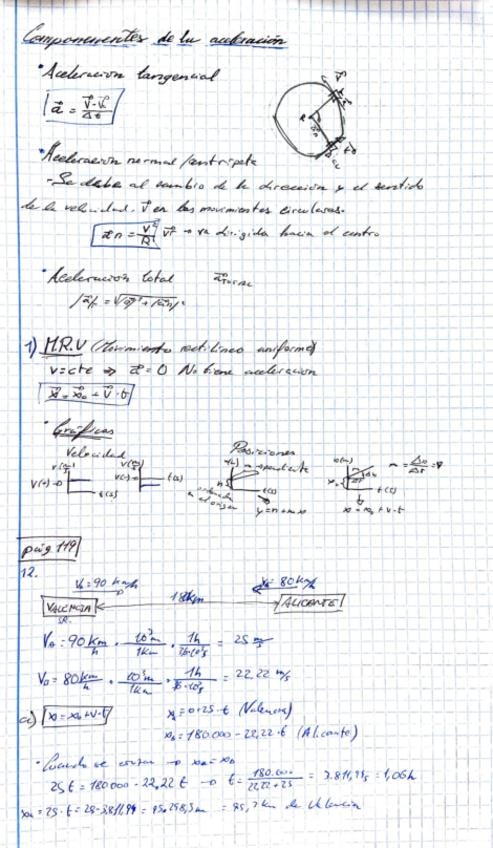 Componentes de la aceleración
· Aceleración tangencial
a = V-V₀ / Δt
· Aceleración normal/centrípeta
- Se debe al cambio de la dirección y el sentido
de la velocidad. V en los movimientos circulares.
an = v²/R → va dirigida hacia el centro
· Aceleración total
1) M.R.U (Movimiento rectilíneo uniforme)
v=cte ⇒ a=0 No tiene aceleración
x = x₀ + v·t
· Gráficas
Velocidad Posiciones
t(s) t(s) pendiente
ordenada en el origen
y=n+mx x=x₀+v·t
pág 119
12.
V=90 km/h 180km V=80 km/h
VALENCIA ALICANTE
S.R.
= 90 km/h · 10³m/1km · 1h/36·10²s = 25 m/s
= 80 km/h · 10³m/1km · 1h/36·10²s = 22,22 m/s
a) x=x₀+v·t x=0+25·t (Valencia)
x=180.000-22,22·t (Alicante)
· Cuando se cruzan →
25t=180000-22,22t → t= 180.000 / 22,22+25 = 3.811,94s = 1,06h
= 25·t = 25·3.811,94 = km de Valencia